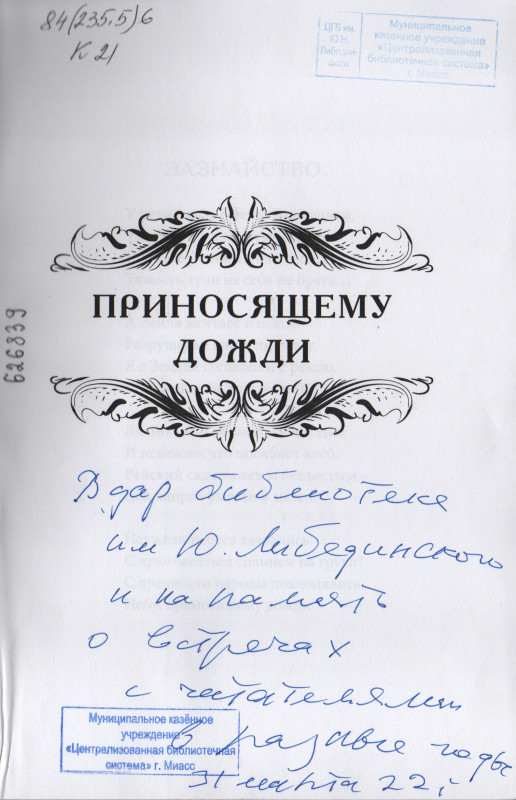 84(235.5)6
К 21
ЦГБ им.
Ю.Н.
Либедин-
ского
Муниципальное
казенное учреждение
«Централизованная
библиотечная система»
г. Миасс
ЗАЗНАЙСТВО
ПРИНОСЯЩЕМУ
ДОЖДИ
626839
В дар библиотеке
им Ю. Либединского
и на память
о встречах
с читателями
в разные годы
31 марта 22 г
Муниципальное казённое
учреждение
«Централизованная библиотечная
система» г. Миасс